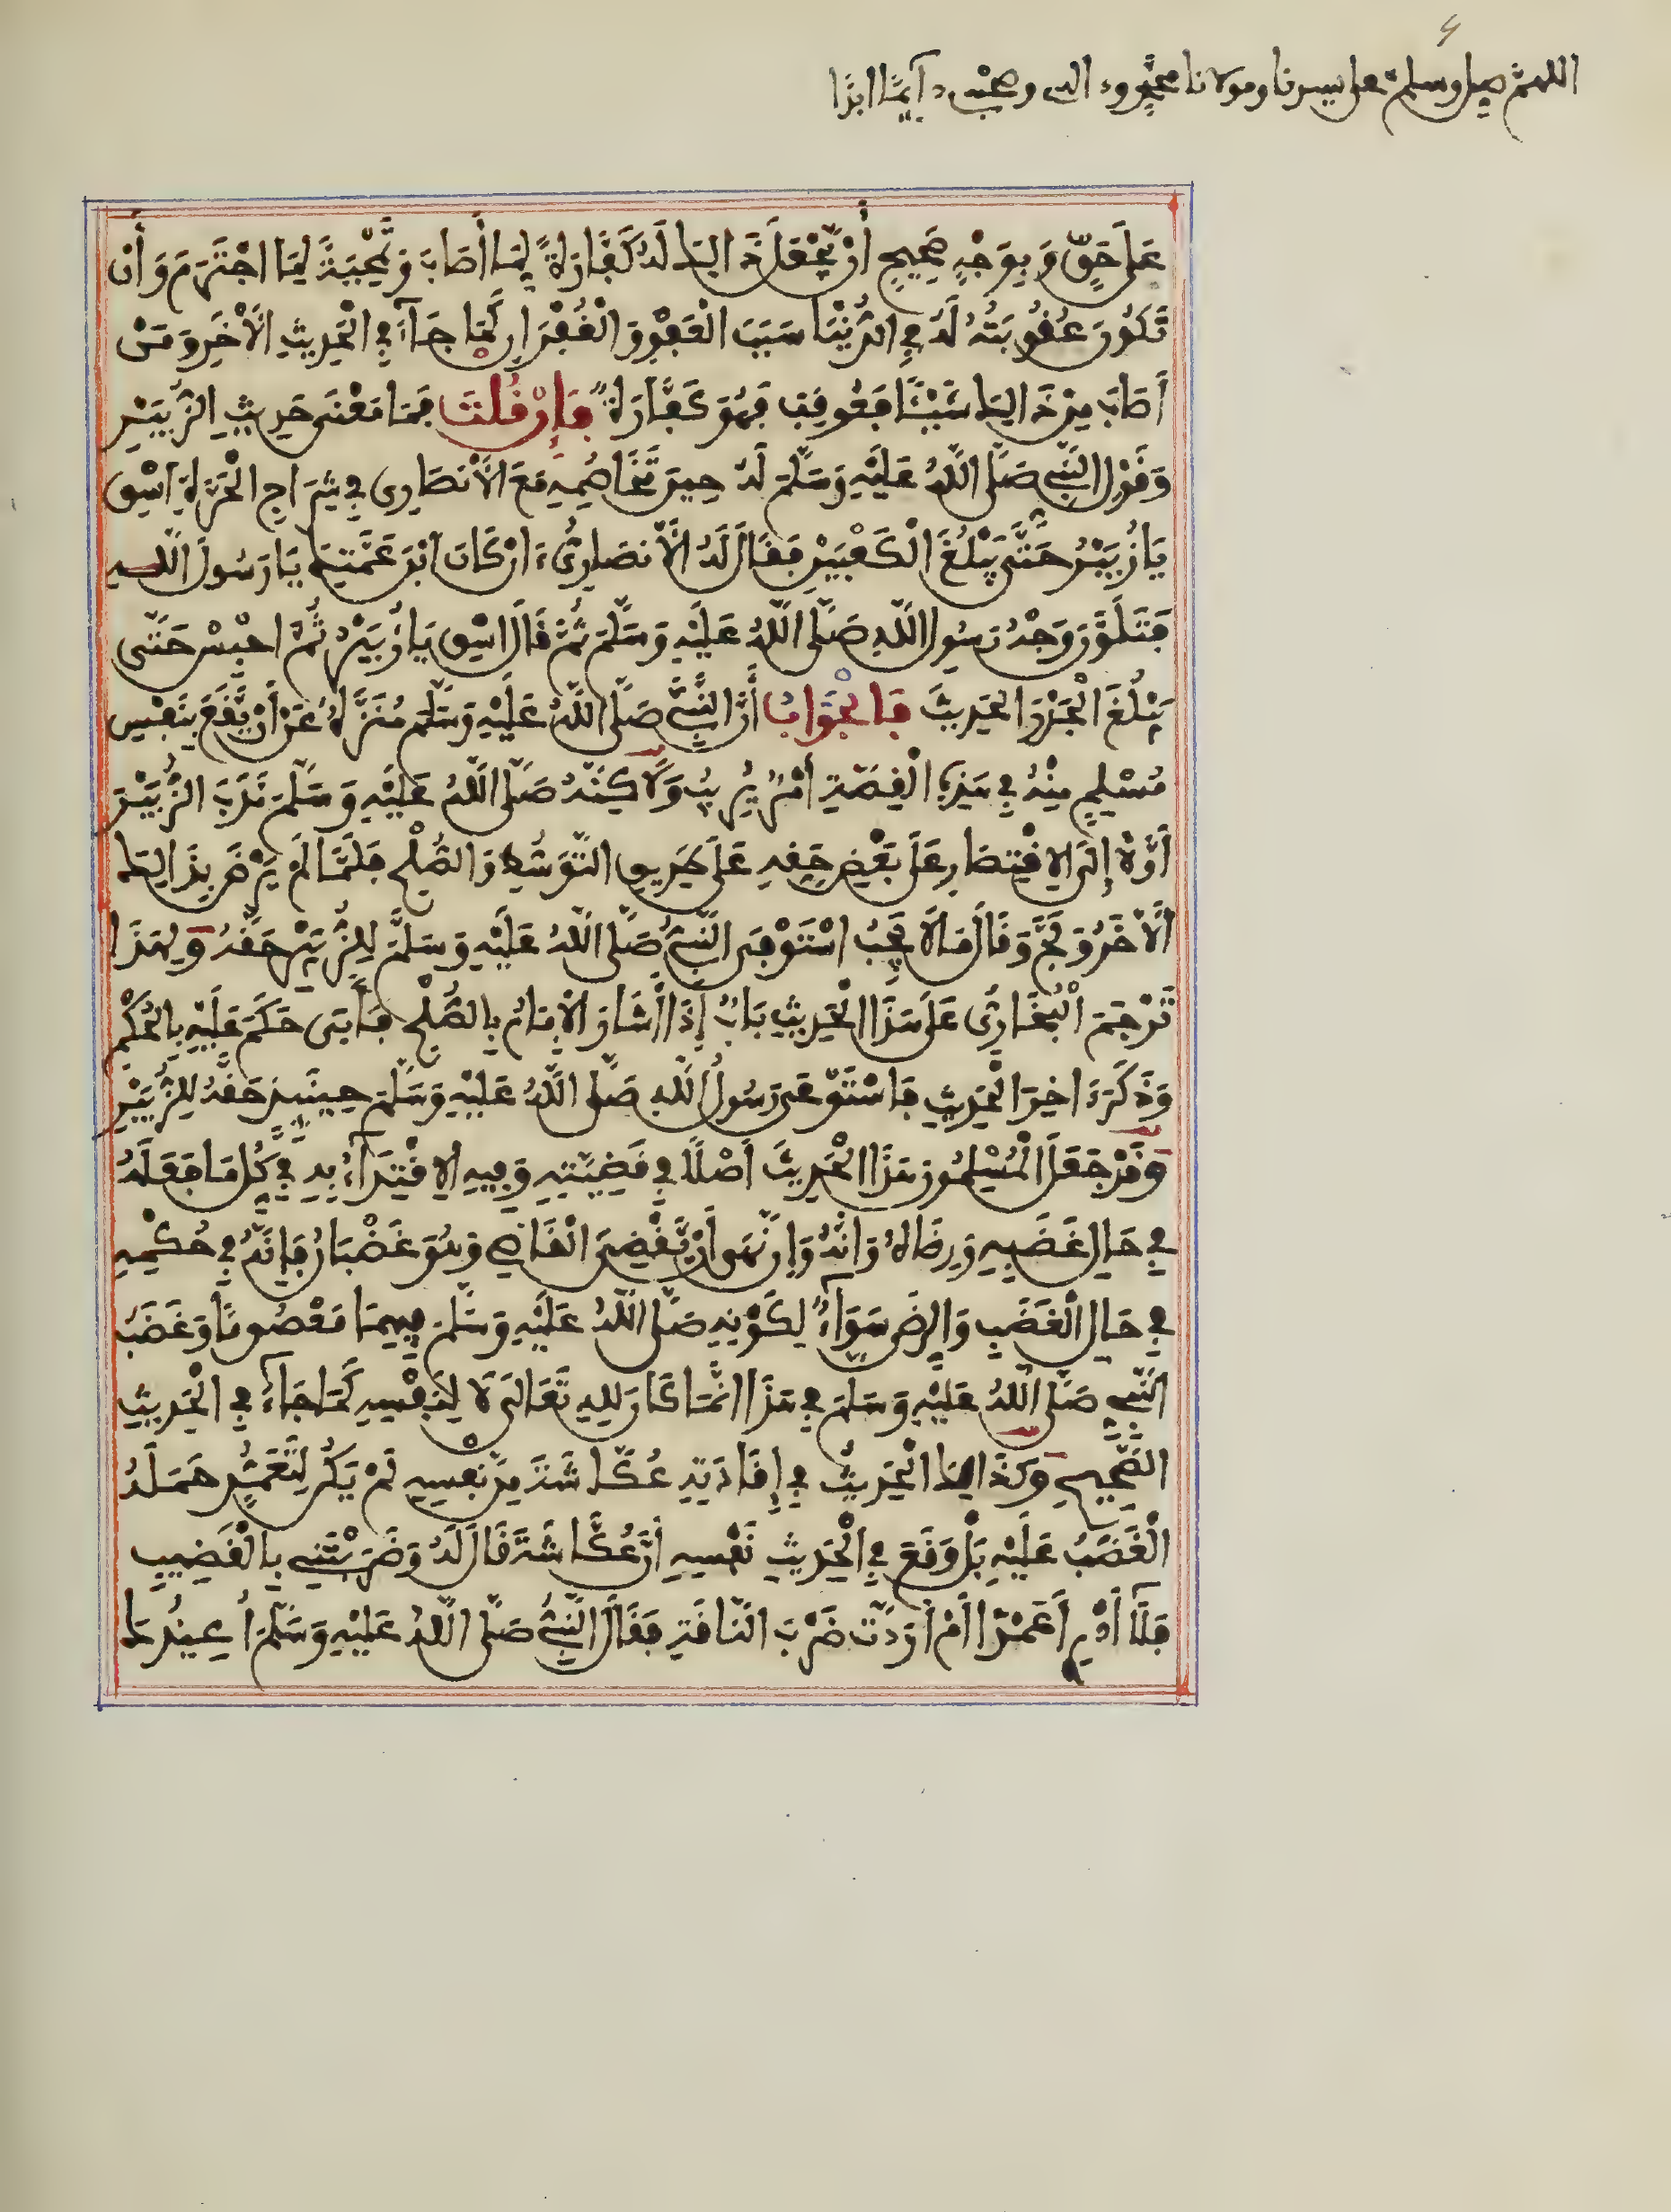 اللهم صل وسلم على سيدنا ومولانا محمد وءاله وصحبه دآئما ابدا
عَلَى حَقٍّ وَبِوَجْهٍ صَحِيحٍ أَنْ يَّجْعَلَ ذَالِكَ لَهُ كَفَّارَةً لِمَا أَصَابَ وَتَمْحِيَةً لِمَا اجْتَرَمَ وَأَن
تَكُونَ عُقُوبَتُهُ لَهُ فِي الدُّنْيَا سَبَبَ الْعَفْوِ وَالْغُفْرَانِ كَمَا جَآءَ فِي الْحَدِيثِ الْأَخَرِ وَمَنْ
أَصَابَ مِنْ ذَالِكَ شَيْئًا فَعُوقِبَ فَهُوَ كَفَّارَةٌ فَإِنْ قُلْتَ فَمَا مَعْنَى حَدِيثِ الزُّبَيْرِ
وَقَوْلِ النَّبِيِّ صَلَّى اللَّهُ عَلَيْهِ وَسَلَّمَ لَهُ حِينَ تَخَاصُمِهِ مَعَ الْأَنْصَارِي فِي شِرَاجِ الْحَرَّةِ اسْقِ
يَا زُبَيْرُ حَتَّى يَبْلُغَ الْكَعْبَيْنِ فَقَالَ لَهُ الْأَنصَارِيُّ ءَانْ كَانَ ابْنَ عَمَّتِكَ يَا رَسُولَ اللَّهِ
فَتَلَوَّنَ وَجْهُ رَسُولِ اللَّهِ صَلَّى اللَّهُ عَلَيْهِ وَسَلَّمَ ثُمَّ قَالَ اسْقِ يَا زُبَيْرُ ثُمَّ احْبِسْ حَتَّى
يَبْلُغَ الْجَدْرَ الحَدِيثَ فَالْجَوَابُ أَنَّ النَّبِيَّ صَلَّى اللَّهُ عَلَيْهِ وَسَلَّمَ مُنَزَّهٌ عَنْ أَنْ يَّقَعَ بِنَفْسِ
مُسْلِمٍ مِنْهُ فِي هَذِهِ الْقِصَّةِ أَمْرٌ يُرِيبُ وَلَاكِنَّهُ صَلَّى اللَّهُ عَلَيْهِ وَسَلَّمَ نَدَبَ الزُّبَيْرَ
أَوَّلًا إِلَى الِاقْتِصَارِ عَلَى بَعْضِ حَقِّهِ عَلَى طَرِيقِ التَّوَسُّطِ وَالصُّلْحِ فَلَمَّا لَمْ يَرْضَ بِذَالِكَ
الْأَخَرُ وَلَجَّ وَقَالَ مَا لَا يَجِبُ اسْتَوْفَى النَّبِيُّ صَلَّى اللَّهُ عَلَيْهِ وَسَلَّمَ لِلزُّبَيْرِ حَقَّهُ وَلِهَذَا
تَرْجَمَ الْبُخَارِيُّ عَلَى هَذَا الْحَدِيثِ بَابُ إِذَا أَشَارَ الْإِمَامُ بِالصُّلْحِ فَأَبَى حَكَمَ عَلَيْهِ بِالْحُكْمِ
وَذَكَرَ ءَاخِرَ الْحَدِيثِ فَاسْتَوْعَى رَسُولُ اللَّهِ صَلَّى اللَّهُ عَلَيْهِ وَسَلَّمَ حِينَئِذٍ حَقَّهُ لِلزُّبَيْرِ
وَقَدْ جَعَلَ الْمُسْلِمُونَ هَذَا الْحَدِيثَ أَصْلًا فِي قَضِيَّتِهِ وَفِيهِ الِاقْتِدَآءُ بِهِ فِي كُلِّ مَا فَعَلَهُ
فِي حَالِ غَضَبِهِ وَرِضَاهُ وَانَّهُ وَإِنْ نَهَى أَنْ يَّقْضِيَ الْقَاضِي وَهُوَ غَضْبَانُ فَإِنَّهُ فِي حُكْمِهِ
فِي حَالِ الْغَضَبِ وَالرِّضَى سَوَآءٌ لِكَوْنِهِ صَلَّى اللَّهُ عَلَيْهِ وَسَلَّمَ فِيهِمَا مَعْصُومًا وَغَضَبُ
النَّبِيِّ صَلَّى اللَّهُ عَلَيْهِ وَسَلَّمَ فِي هَذَا إِنَّمَا كَانَ لِلهِ تَعَالَى لَا لِنَفْسِهِ كَمَا جَآءَ فِي الْحَدِيثِ
الصَّحِيحِ وَكَذَالِكَ الْحَدِيثُ فِي إِقَادَتِهِ عُكَّاشَةَ مِن نَّفْسِهِ لَمْ يَكُن لِتَعَمُّدٍ حَمَلَهُ
الْغَضَبُ عَلَيْهِ بَلْ وَقَعَ فِي الْحَدِيثِ نَفْسِهِ أَنَّ عُكَّاشَةَ قَالَ لَهُ وَضَرَبْتَنِي بِالْقَضِيبِ
فَلَا أَدْرِي أَعَمْدًا أَمْ أَرَدتَّ ضَرْبَ النَّاقَةِ فَقَالَ النَّبِيُّ صَلَّى اللَّهُ عَلَيْهِ وَسَلَّمَ أُعِيذُكَ